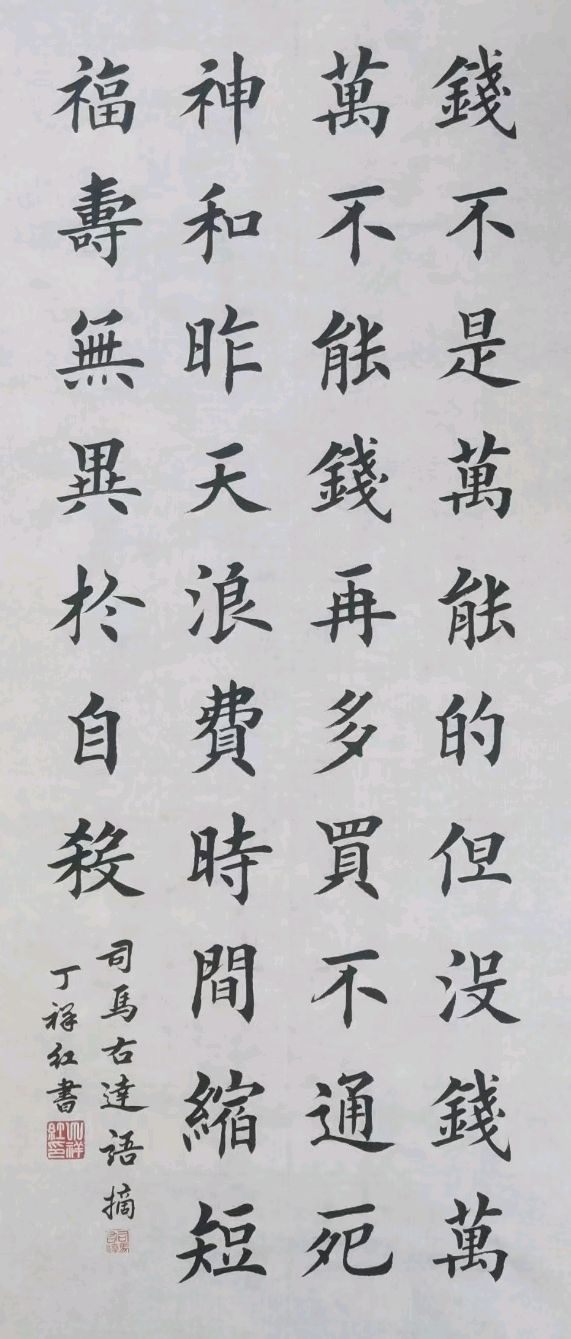 錢不是萬能的但没錢萬
萬不能錢再多買不通死
神和昨天浪費時間縮短
福壽無異於自殺
司馬右達語摘
丁祥紅書